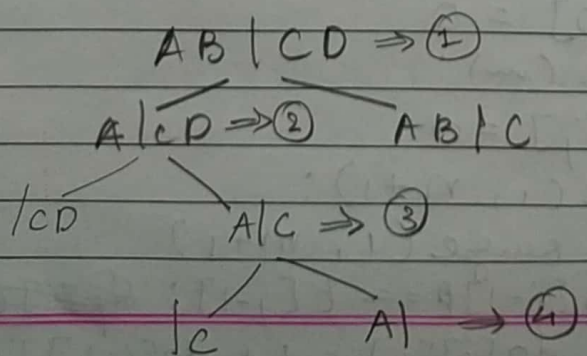 AB | CD ⇒ ①
A | CD ⇒ ② AB | C
| CD A | C ⇒ ③
| C A | → ④